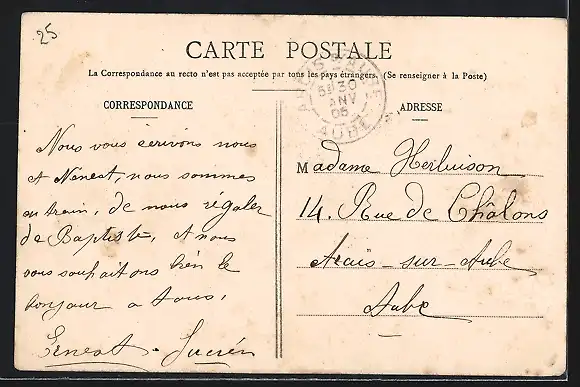 25
CARTE POSTALE
La Correspondance au recto n'est pas acceptée par tous les pays étrangers. (Se renseigner à la Poste)
CORRESPONDANCE
ADRESSE
5E 30
JANV
05
AUBE
Nous vous écrivons nous
et Nenest, nous sommes
en train, de nous régaler
de Baptiste, et nous
vous souhaitons bien le
bonjour a tous,
Ernest. Lucien
Madame Herluison
14. Rue de Châlons
Arcis-sur-Aube
Aube